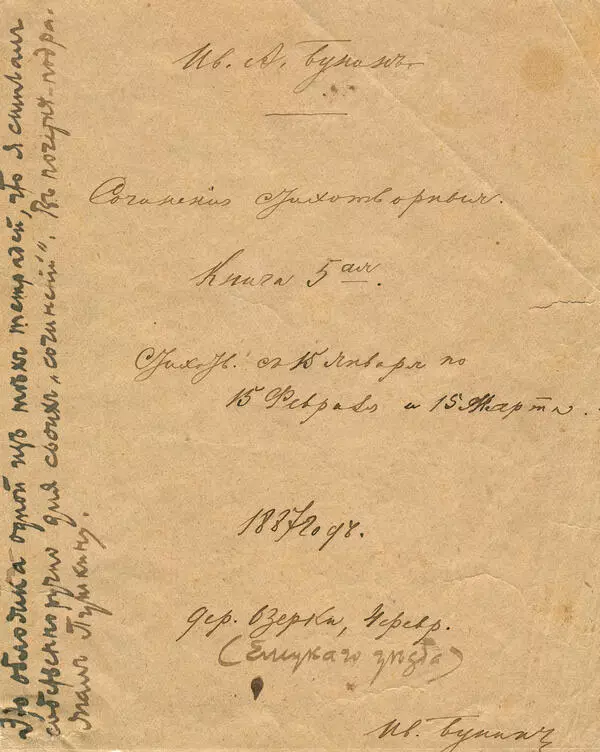 Ив. А. Бунинъ.
Сочиненія Стихотворныя.
Книга 5ая.
Стихотв. съ 15 Января по
15 Февраля и 15 Марта.
1887 годъ.
дер. Озерки, 4 февр.
(Елецкаго уѣзда)
Ив. Бунинъ
Это обложка одной изъ тѣхъ тетрадей, что я сшивалъ
собственноручно для своихъ „сочиненій". Въ почеркѣ подра-
жалъ Пушкину.